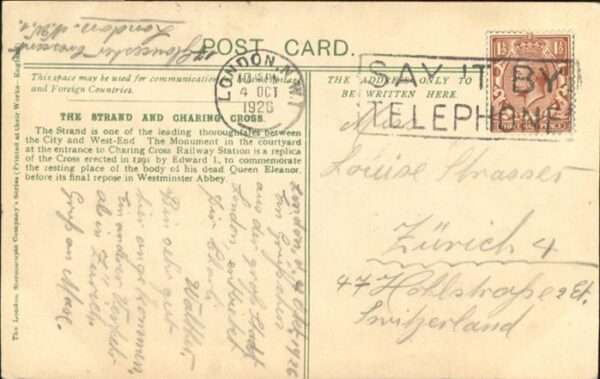 Gloucester Crescent
London. N.W.1.
POST CARD.
This space may be used for communication to
and Foreign Countries.
THE ADDRESS ONLY TO
BE WRITTEN HERE.
LONDON. N.W.1
4 OCT
1926
SAY IT BY
TELEPHONE
1½ 1½
THE STRAND AND CHARING CROSS.
The Strand is one of the leading thoroughfares between
the City and West-End. The Monument in the courtyard
at the entrance to Charing Cross Railway Station is a replica
of the Cross erected in 1291 by Edward I, to commemorate
the resting place of the body of his dead Queen Eleanor,
before its final repose in Westminster Abbey.
The London Stereoscopic Company's Series (Printed at their Works - England
London d. 4. Okt. 1926
aus der groß Stadt
London
Bin sehr gut
hier angekommen,
als in Zürich.
Gruß an Max.
Miss
Louise Strasser
Zürich 4
47 Hohlstraße 2 Et.
Switzerland